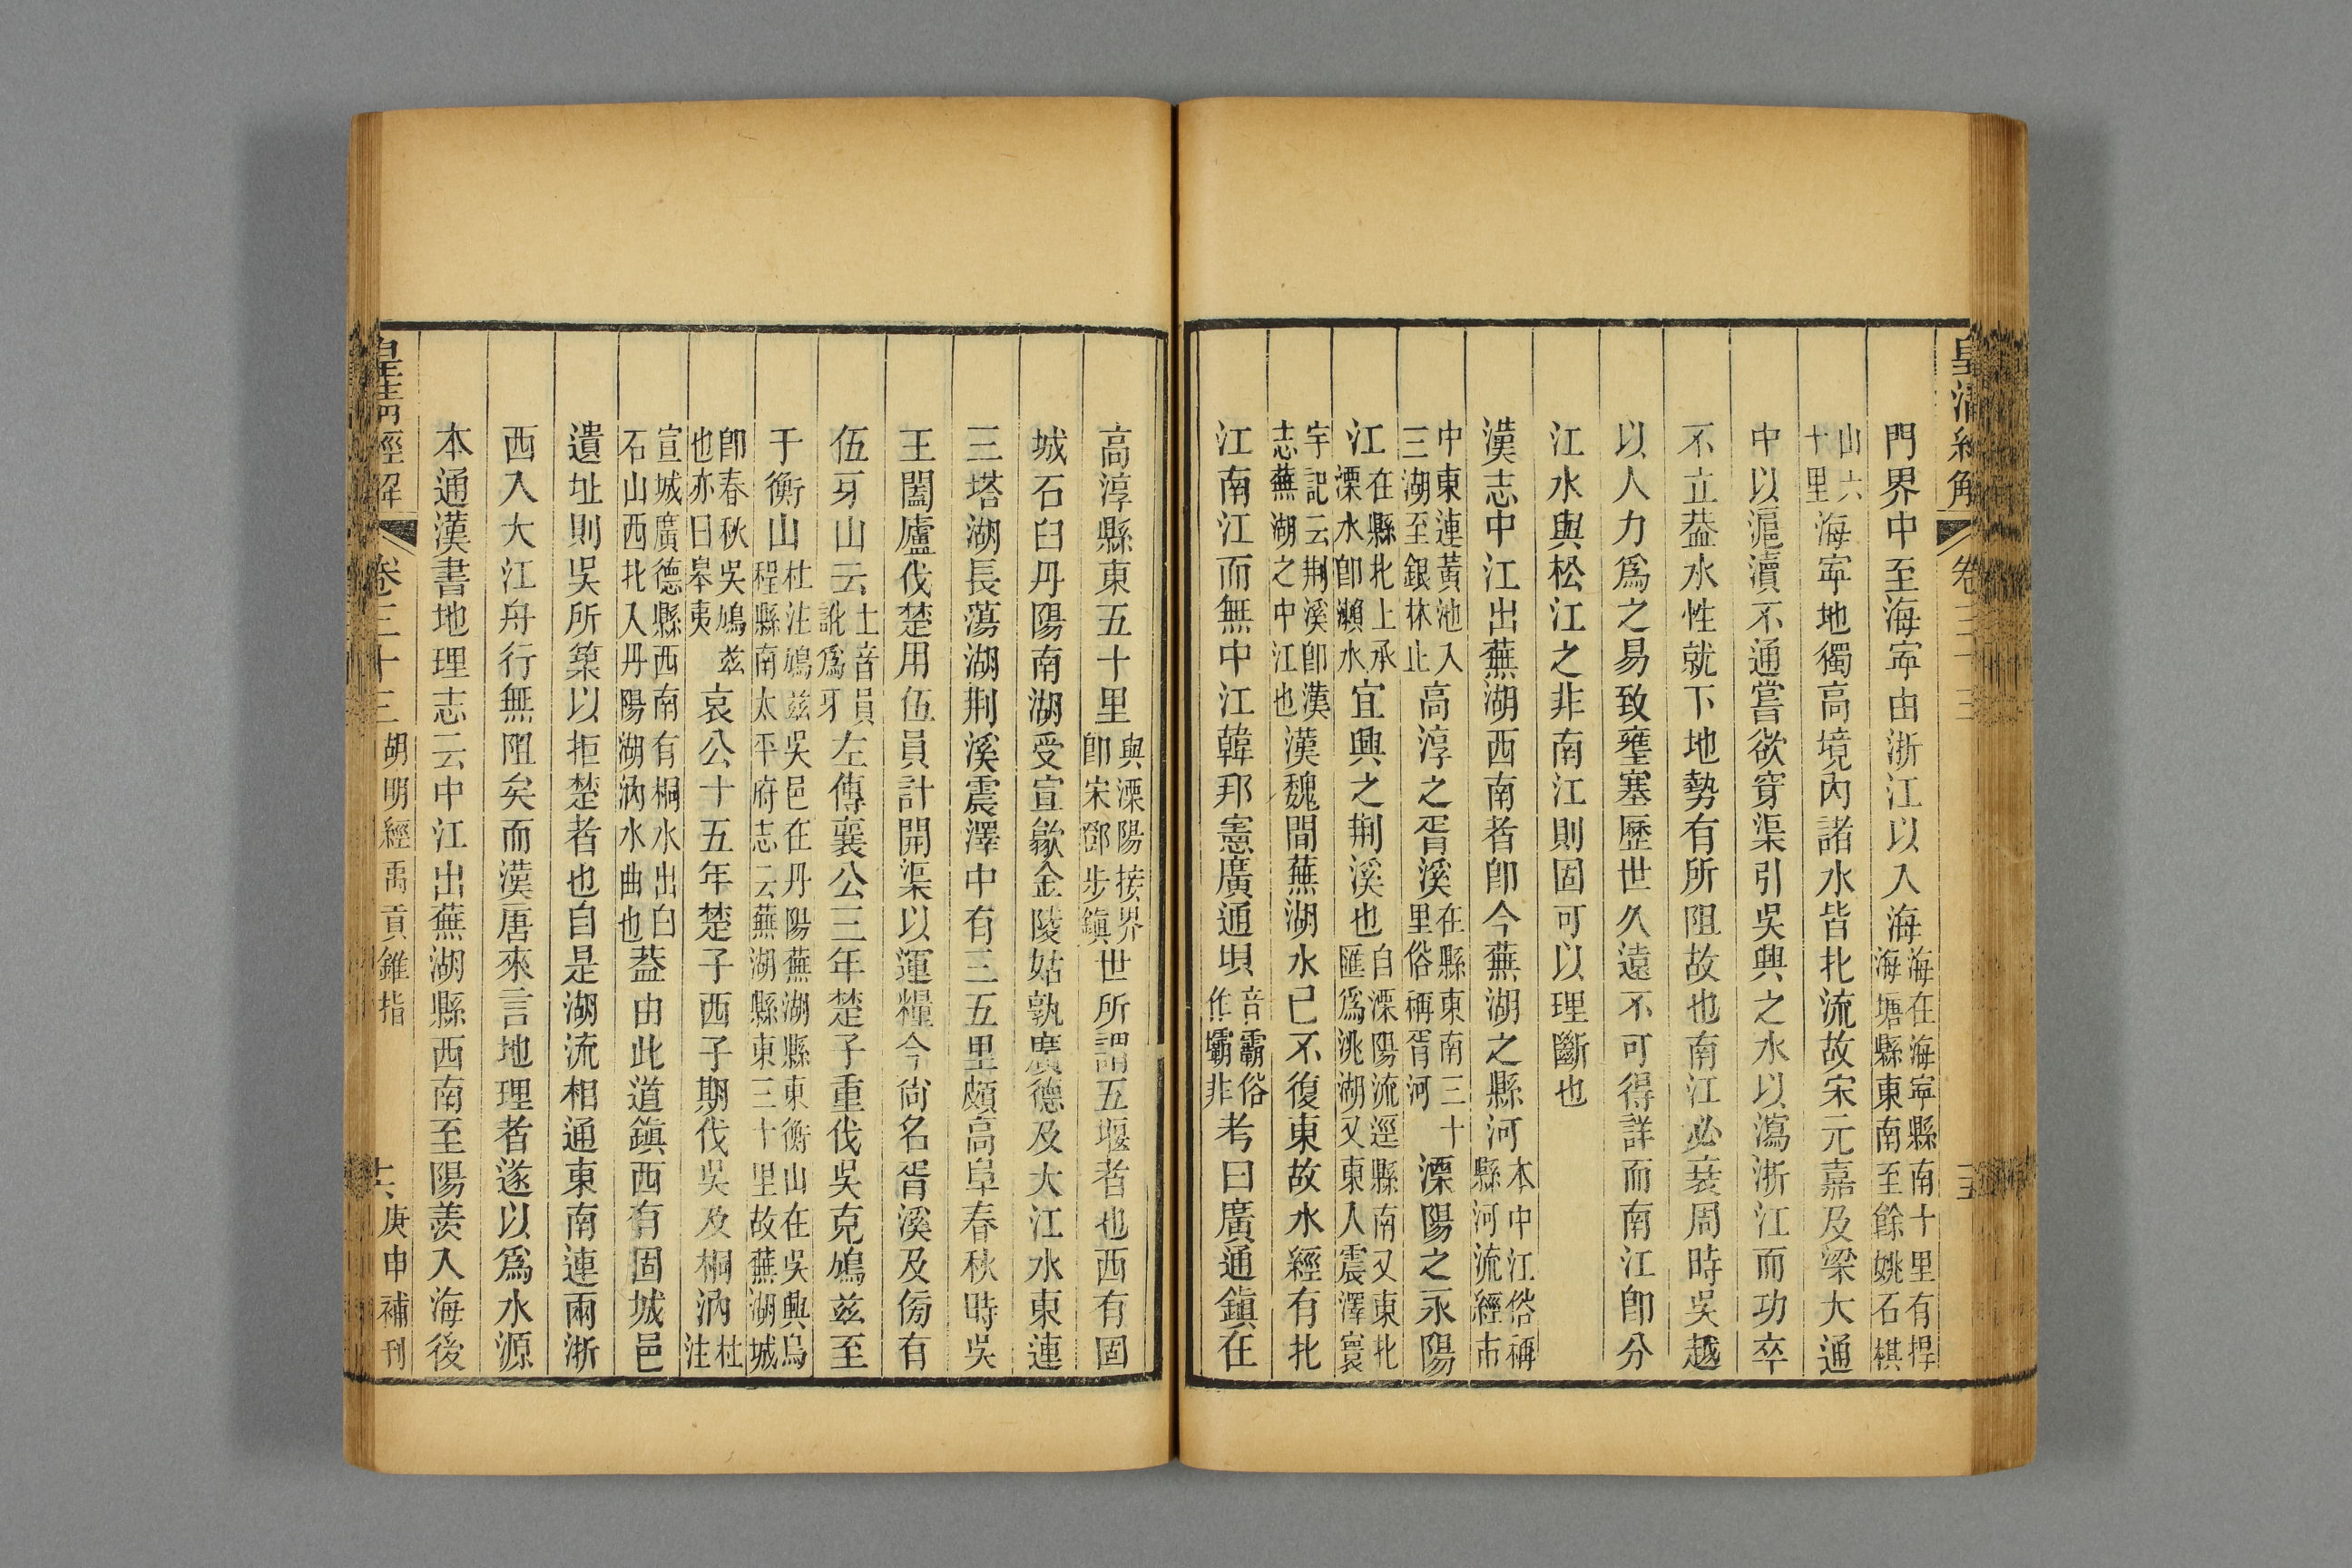 皇清經解
卷三十三
門界中至海寧由浙江以入海海在海寧縣南十里有捍海塘縣東南至餘姚石棋
山六十里海寧地獨高境內諸水皆北流故宋元嘉及梁大通
中以滬瀆不通嘗欲穿渠引吳興之水以瀉浙江而功卒
不立葢水性就下地勢有所阻故也南江必衰周時吳越
以人力爲之易致壅塞歷世久遠不可得詳而南江卽分
江水與松江之非南江則固可以理斷也
漢志中江出蕪湖西南者卽今蕪湖之縣河本中江俗稱縣河流經市
中東連黃池入三湖至銀林止高淳之胥溪在縣東南三十里俗稱胥河溧陽之永陽
江在縣北上承溧水卽瀨水宜興之荆溪也自溧陽流逕縣南又東北匯爲洮湖又東入震澤寰
宇記云荆溪卽漢志蕪湖之中江也漢魏間蕪湖水已不復東故水經有北
江南江而無中江韓邦憲廣通垻音霸俗作壩非考曰廣通鎭在
高淳縣東五十里與溧陽接界卽宋鄧步鎭世所謂五堰者也西有固
城石臼丹陽南湖受宣歙金陵姑孰廣德及大江水東連
三塔湖長蕩湖荆溪震澤中有三五里頗高阜春秋時吳
王闔廬伐楚用伍員計開渠以運糧今尙名胥溪及傍有
伍牙山云土音員訛爲牙左傳襄公三年楚子重伐吳克鳩茲至
于衡山杜注鳩茲吳邑在丹陽蕪湖縣東衡山在吳興烏程縣南太平府志云蕪湖縣東三十里故蕪湖城
卽春秋吳鳩茲也亦曰皋夷哀公十五年楚子西子期伐吳及桐汭杜注
宣城廣德縣西南有桐水出白石山西北入丹陽湖汭水曲也葢由此道鎭西有固城邑
遺址則吳所築以拒楚者也自是湖流相通東南連兩浙
西入大江舟行無阻矣而漢唐來言地理者遂以爲水源
本通漢書地理志云中江出蕪湖縣西南至陽羨入海後
皇淸經解
卷三十三
胡明經禹貢錐指
庚申補刊